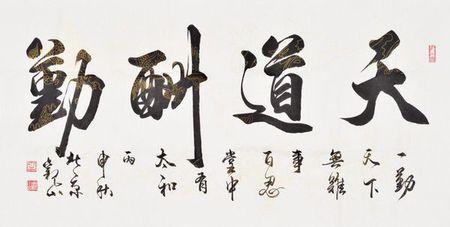 天道酬勤
一勤
天下
無難
事
百忍
堂中
有
太和
丙
申秋
京